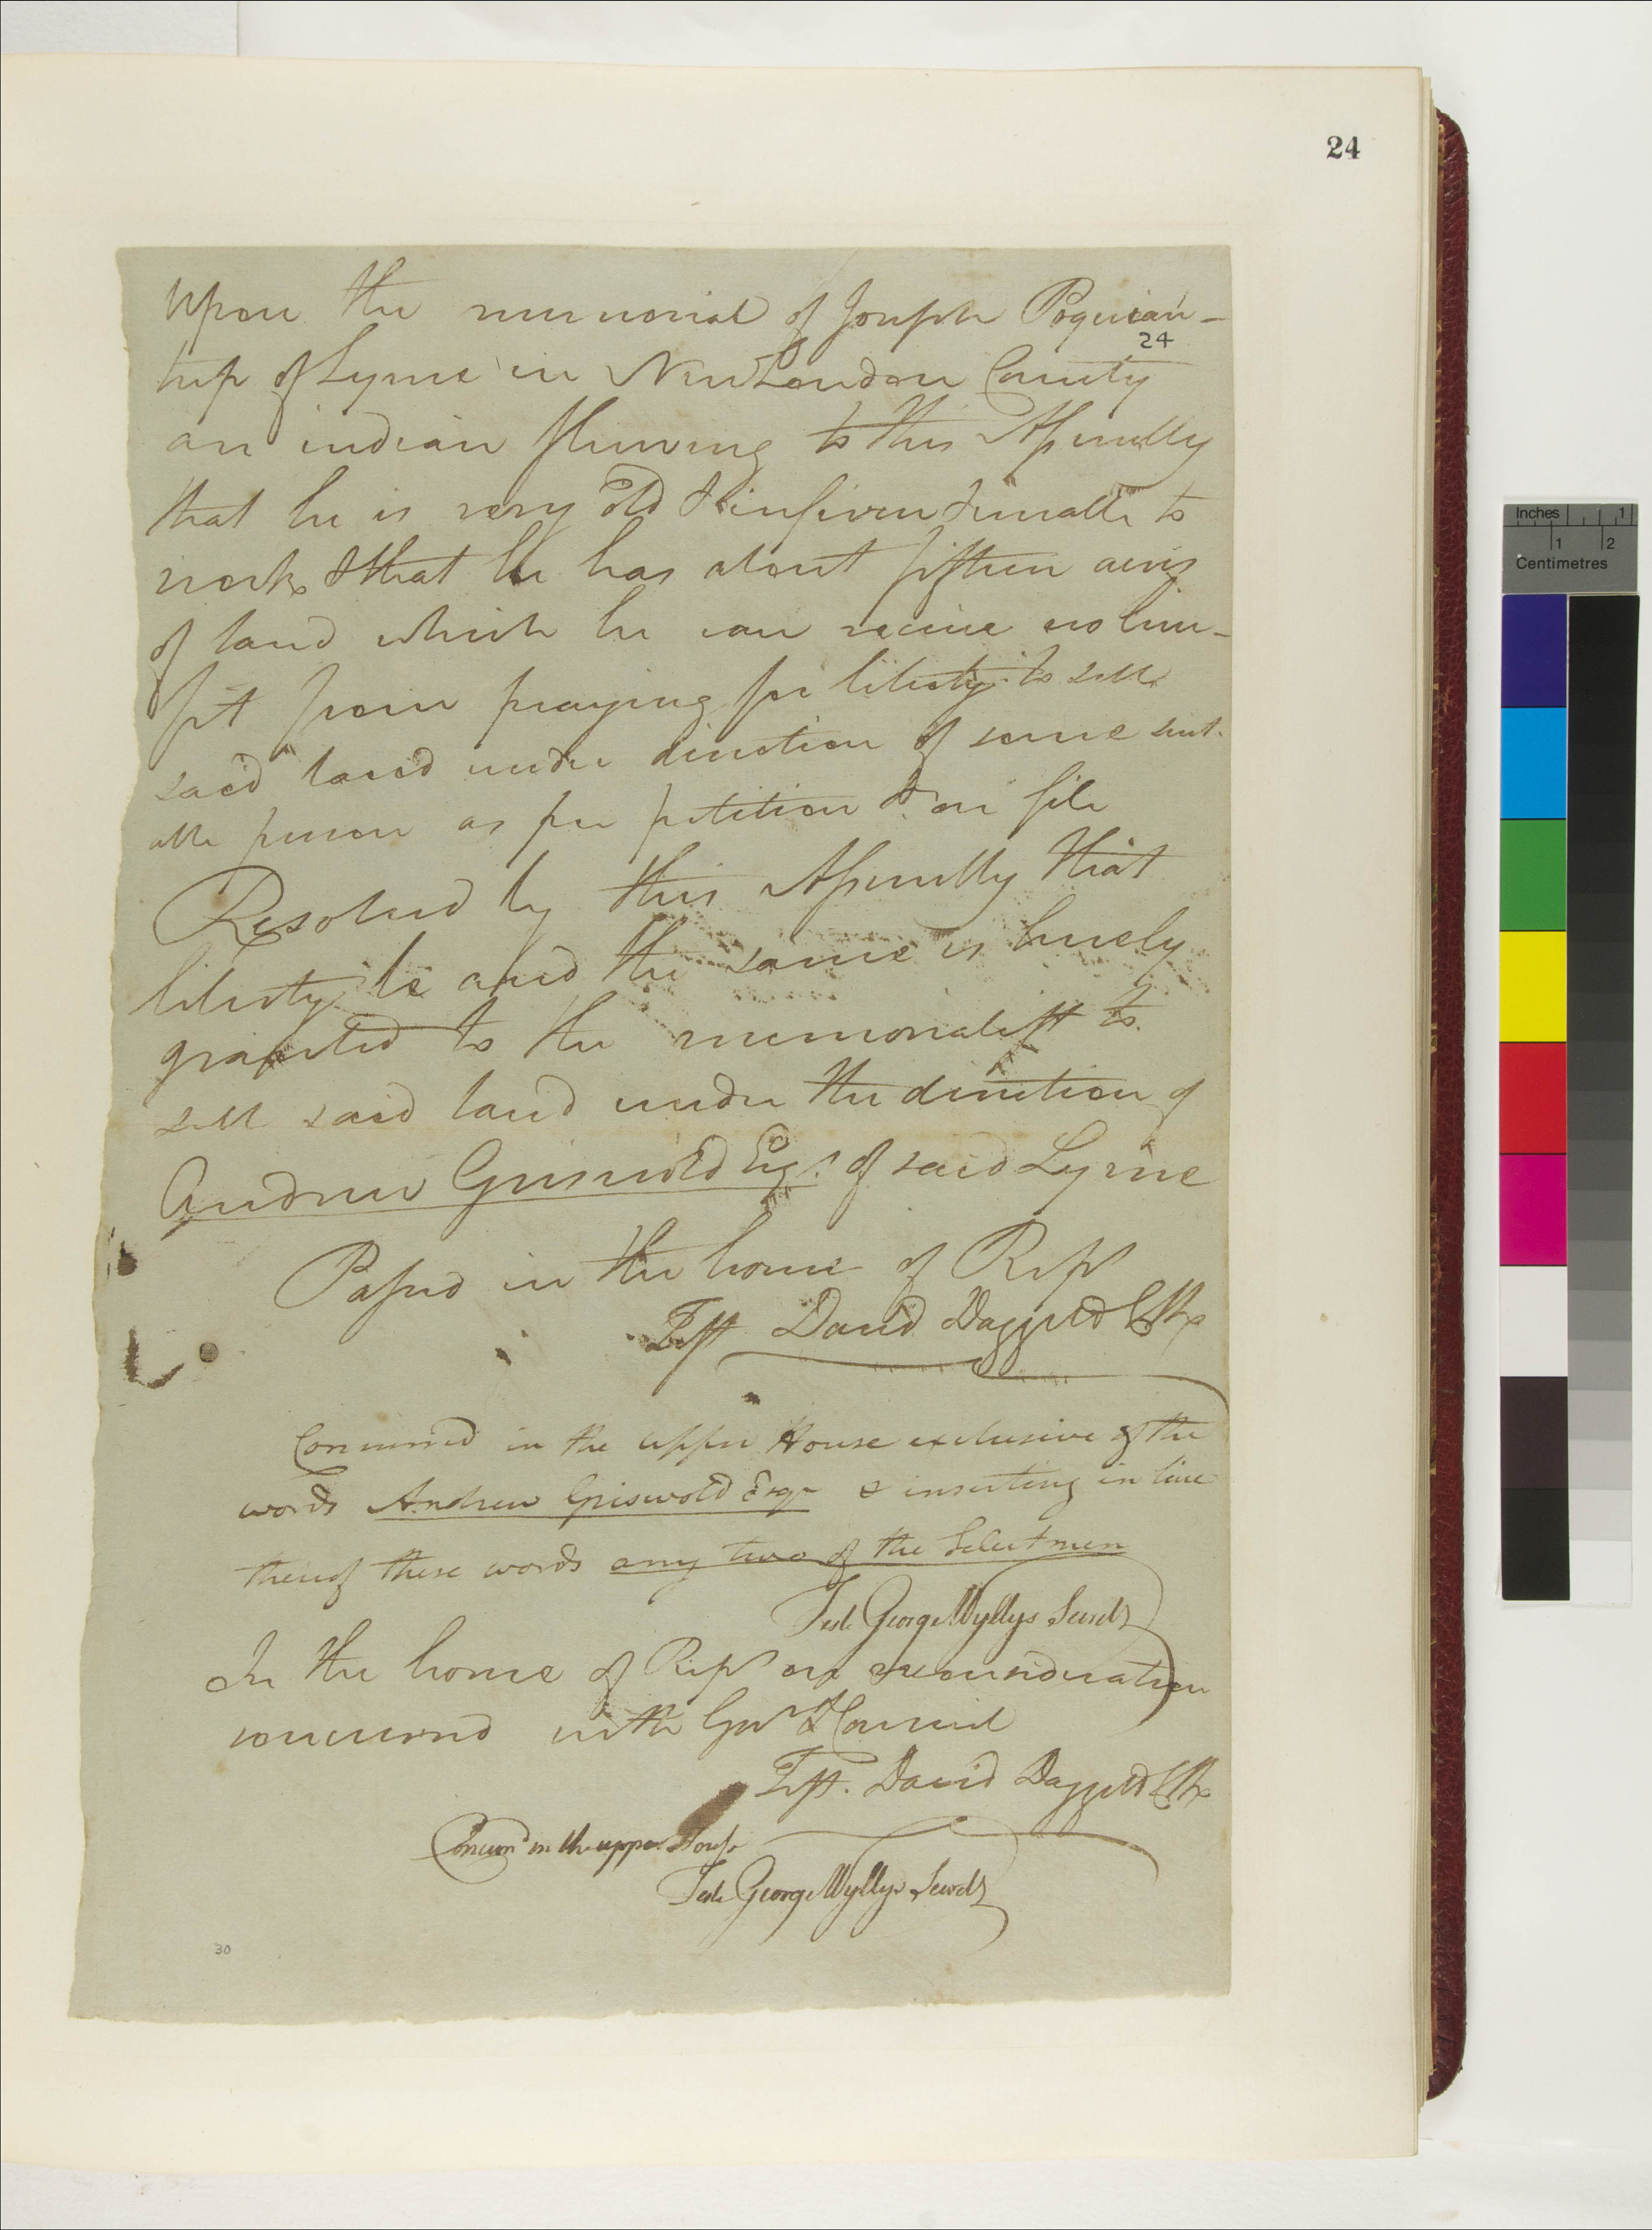 24
Upon the memorial of Joseph Poquian-
24
tup of Lyme in New London County
an indian shewing to this Assembly
that he is very old & infirm & unable to
work & that he has about fifteen acres
of land which he can receive no bene-
fit from praying for liberty to sell
said land under direction of some suit-
able person as per petition &c on file
Resolved by this Assembly that
liberty be and the same is hereby
granted to the memorialist to
sell said land under the direction of
Andrew Griswold Esqr. of said Lyme
Passed in the house of Reps
Test David Daggett Clk
Concurred in the upper House exclusive of the
words Andrew Griswold Esqr & inserting in lieu
thereof these words any two of the Select men
Teste George Wyllys Secrety
In the house of Reps on reconsideration
concurred with Govr & Council
Test. David Daggett Clk
Concurrd in the upper House
Teste George Wyllys Secrety
30
Inches 1
1 2
Centimetres